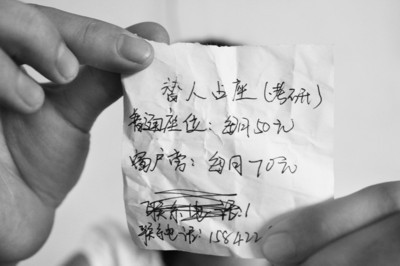 替人占座(考研)
普通座位:每月50元
窗户旁:每月70元
联系电话:1
联系电话:158422